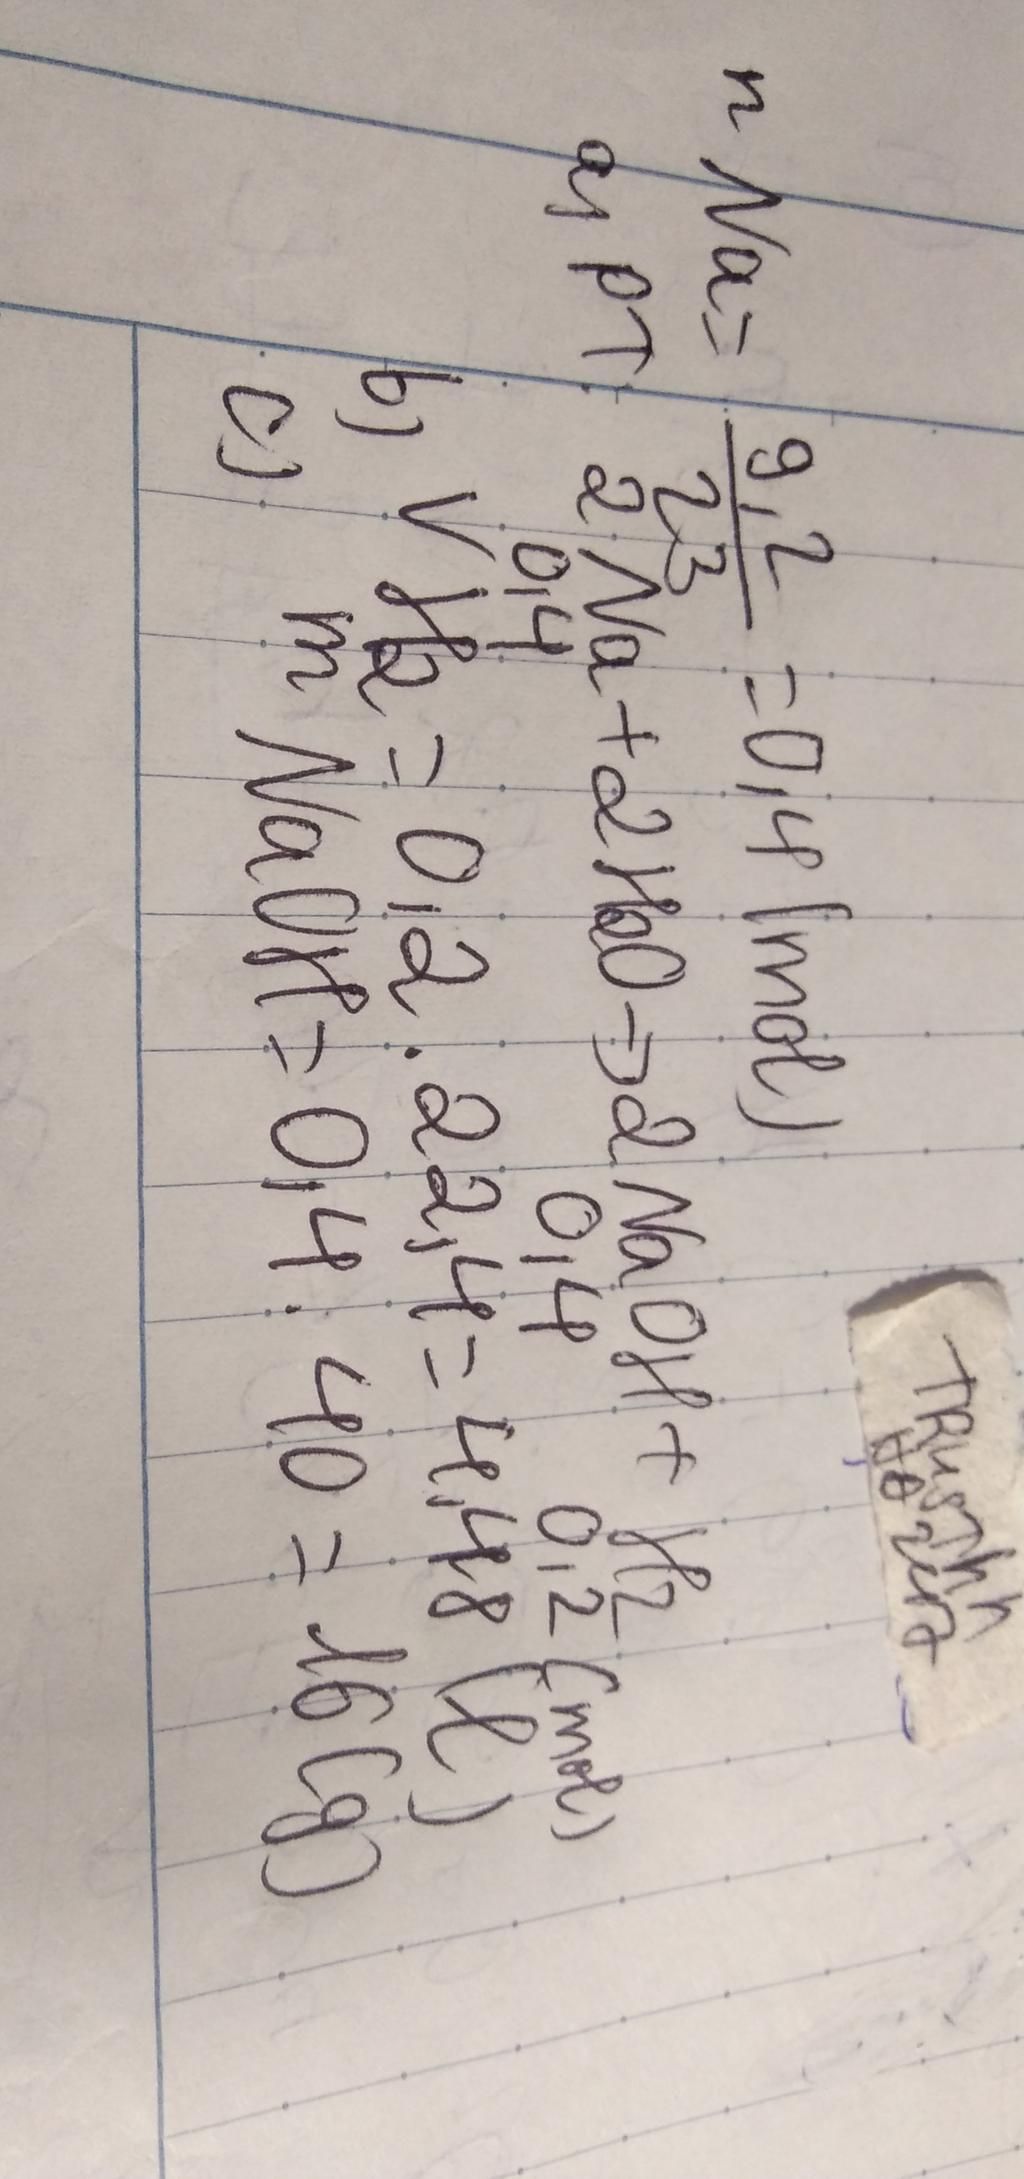 n Na = 9,2 / 23 = 0,4 (mol)
a, PT 2Na + 2H2O → 2NaOH + H2
0,4 0,4 0,2 (mol)
b) V H2 = 0,2 . 22,4 = 4,48 (l)
c) m NaOH = 0,4 . 40 = 16 (g)